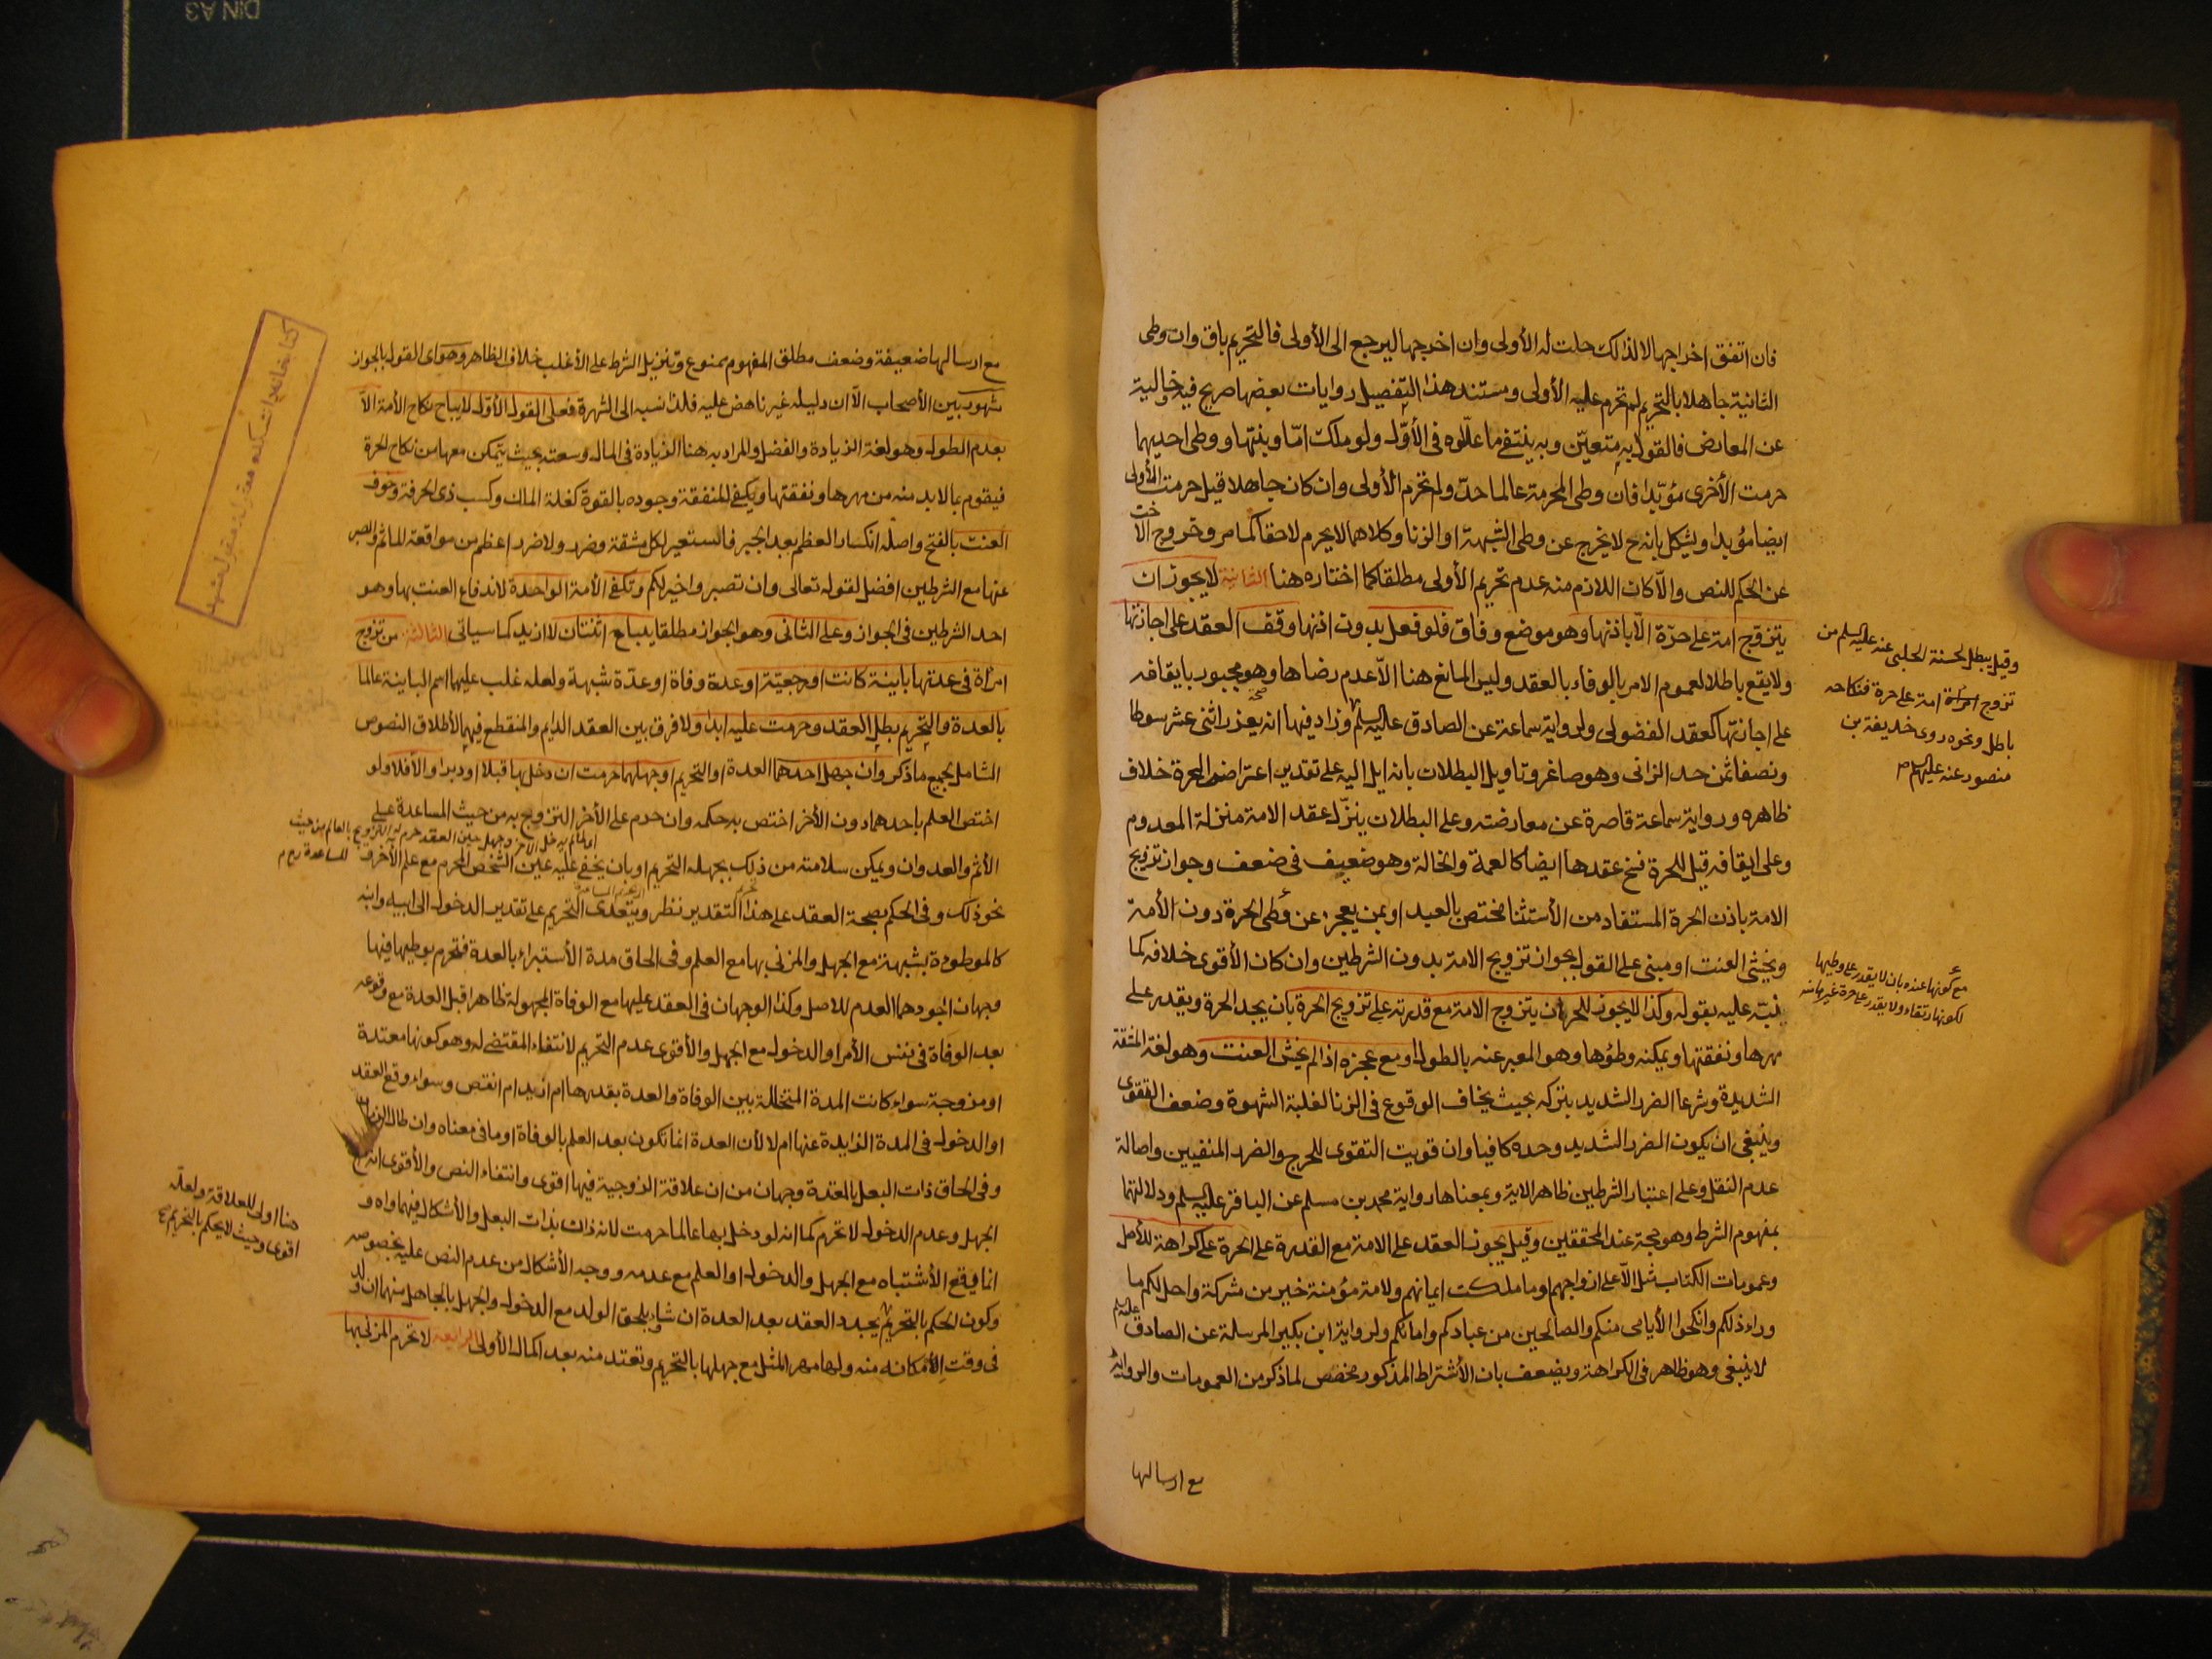 فان اتفق اخراجها لا لذلك حلت له الأولى وان اخرجها ليرجع الى الأولى فالتحريم باق وان وطى
الثانية جاهلا بالتحريم لم تحرم عليه الأولى ومستند هذا التفصيل روايات بعضها صريح فيه وخالية
عن المعارض فالقول به متعيّن وبه ينتفى ما علّلوه فى الأوّل ولو ملك امّا وبنتها ووطى احديهما
حرمت الأخرى مؤبّدا فان وطى المحرمة عالما حدّ ولم تحرم الأولى وان كان جاهلا قيل حرمت الأولى
ايضا مؤبدا ويشكل بانه ح لا يخرج عن وطى الشبهة او الزنا وكلاهما لا يحرم لاحقا كما مر وخروج الاخت
عن الحكم للنص والّا كان اللازم منه عدم تحريم الأولى مطلقا كما اختاره هنا الثانية لا يجوز ان
يتزوّج امة على حرّة الّا باذنها وهو موضع وفاق فلو فعل بدون اذنها وقف العقد على اجازتها
ولا يقع باطلا لعموم الامر بالوفاء بالعقد وليس المانع هنا الّا عدم رضاها وهو مجبور بايقافه
على اجازتها كعقد الفضولى ولرواية سماعة عن الصادق عليه السلم وزاد فيها انه يعزر اثنى عشر سوطا
ونصفا ثمن حد الزانى وهو صاغر وتاويل البطلان بانه ايل اليه على تقدير اعتراض الحرة خلاف
ظاهره ورواية سماعة قاصرة عن معارضته وعلى البطلان ينزّل عقد الامة منزلة المعدوم
وعلى ايقافه قيل للحرة فسخ عقدها ايضا كالعمة والخالة وهو ضعيف فى ضعف وجواز تزويج
الامة باذن الحرة المستفاد من الأستثنا مختص بالعبد او بمن يعجز عن وطى الحرة دون الأمة
ويخشى العنت او مبنى على القول بجواز تزويج الامة بدون الشرطين وان كان الأقوى خلافه كما
نبّه عليه بقوله وكذا لا يجوز للحر ان يتزوج الامة مع قدرته على تزويج الحرة بان يجد الحرة ويقدر على
مهرها ونفقتها ويمكنه وطؤها وهو المعبر عنه بالطول او مع عجزه اذا لم يخش العنت وهو لغة المشقة
الشديدة وشرعا الضرر الشديد بتركه بحيث يخاف الوقوع فى الزنا لغلبة الشهوة وضعف التقوى
وينبغى ان يكون الضرر الشديد وحده كافيا وان قويت التقوى للحرج والضرر المنفيين واصالة
عدم النقل وعلى اعتبار الشرطين ظاهر الاية وبمعناها رواية محمد بن مسلم عن الباقر عليه السلم ودلالتها
بمفهوم الشرط وهو حجة عند المحققين وقيل يجوز العقد على الامة مع القدرة على الحرة على كراهة للأصل
وعمومات الكتاب مثل الّا على ازواجهم او ما ملكت ايمانهم ولامة مؤمنة خير من مشركة واحل لكم ما
وراء ذلكم وانكحوا الأيامى منكم والصالحين من عبادكم وامائكم ولرواية ابن بكير المرسلة عن الصادق عليه السلم
لا ينبغى وهو ظاهر فى الكراهة ويضعف بان الأشتراط المذكور مخصص لما ذكر من العمومات والرواية
مع ارسالها
وقيل يبطل لحسنة الحلبى عنه عليه السلم من
تزوج امراة امة على حرة فنكاحه
باطل ونحوه روى حذيفة بن
منصور عنه عليه السلم
مع كونها عنده بان لا يقدر على وطيها
لكونها رتقاء ولا يقدر على حرة غيرها منه
مع ارسالها ضعيفة وضعف مطلق المفهوم ممنوع وتنزيل الشرط على الأغلب خلاف الظاهر وهو اى القول بالجواز
مشهور بين الأصحاب الّا ان دليله غير ناهض عليه فلذا نسبه الى الشهرة فعلى القول الأوّل لا يباح نكاح الأمة الّا
بعدم الطول وهو لغة الزيادة والفضل والمراد به هنا الزيادة فى المال وسعته بحيث يتمكن معها من نكاح الحرة
فيقوم بما لا بد منه من مهرها ونفقتها ويكفى للنفقة وجوده بالقوة كغلة الملك وكسب ذى الحرفة وخوف
العنت بالفتح واصله انكسار العظم بعد الجبر فاستعير لكل مشقة وضرر ولا ضرر اعظم من مواقعة الماثم والصبر
عنها مع الشرطين افضل لقوله تعالى وان تصبروا خير لكم وتكفى الأمة الواحدة لاندفاع العنت بها وهو
احد الشرطين فى الجواز وعلى الثانى وهو الجواز مطلقا يباح اثنتان لا ازيد كما سياتى الثالثة من تزوج
امراة فى عدتها باينة كانت او رجعيّة او عدة وفاة او عدّة شبهة ولعله غلب عليها اسم الباينة عالما
بالعدة والتحريم بطل العقد وحرمت عليه ابدا ولا فرق بين العقد الدايم والمنقطع فيهما لأطلاق النصوص
الشامل لجميع ما ذكر وان جهل احدهما العدة او التحريم او جهلهما حرمت ان دخل بها قبلا او دبرا والّا فلا ولو
اختص العلم باحدهما دون الأخر اختص به حكمه وان حرم على الأخر التزويج به من حيث المساعدة على
الأثم والعدوان ويمكن سلامته من ذلك بجهله التحريم او بان يخفى عليه عين الشخص المحرم مع علم الأخر
نحو ذلك وفى الحكم بصحة العقد على هذا التقدير نظر ويتعدى التحريم على تقدير الدخول الى ابيه وابنه
كالموطوءة بشبهة مع الجهل والمزنى بها مع العلم وفى الحاق مدة الأستبراء بالعدة فتحرم بوطيها فيها
وجهان اجودهما العدم للاصل وكذا الوجهان فى العقد عليها مع الوفاة المجهولة ظاهرا قبل العدة مع وقوعه
بعد الوفاة فى نفس الأمر او الدخول مع الجهل والأقوى عدم التحريم لانتفاء المقتضى له وهو كونها معتدة
او مزوجة سواء كانت المدة المتخللة بين الوفاة والعدة بقدرها ام ازيد ام انقص وسواء وقع العقد
او الدخول فى المدة الزايدة عنها ام لا لأن العدة انما تكون بعد العلم بالوفاة او ما فى معناه وان طال الزمان
وفى الحاق ذات البعل بالمعتدة وجهان من ان علاقة الزوجية فيها اقوى وانتفاء النص والأقوى انه مع
الجهل وعدم الدخول لا تحرم كما انه لو دخل بها عالما حرمت لانه زان بذات البعل والأشكال فيهما واه و
انما يقع الأشتباه مع الجهل والدخول او العلم مع عدمه ووجه الأشكال من عدم النص عليه بخصوصه
وكون الحكم بالتحريم يجدد العقد بعد العدة ان شاء ويلحق الولد مع الدخول والجهل بالجاهل منهما ان ولد
فى وقت الأمكانه منه ولها مهر المثل مع جهلها بالتحريم وتعتد منه بعد اكمال الأولى الرابعة لا تحرم المزنى بها
هنا اولى للعلاقة ولعله
اقوى وحيث لا يحكم بالتحريم